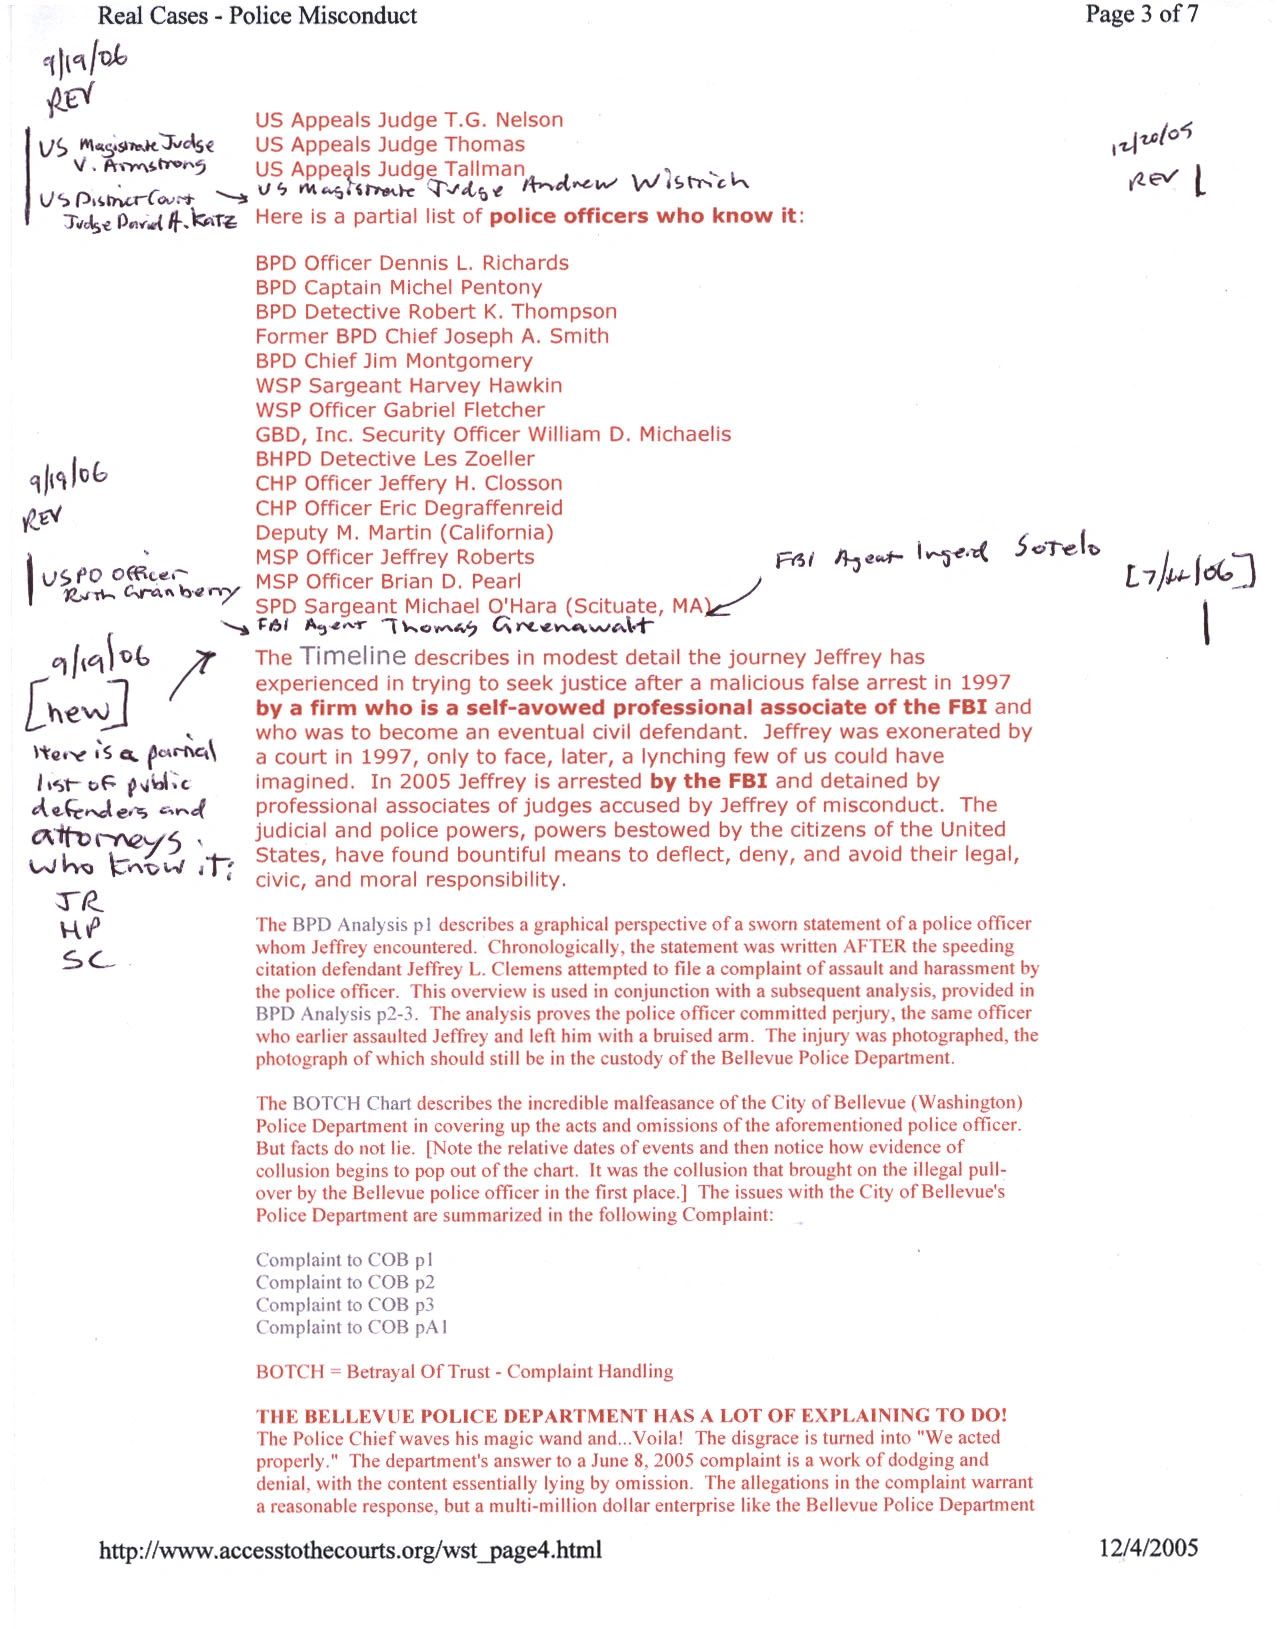 Real Cases - Police Misconduct
Page 3 of 7
9/19/06
REV
US Magistrate Judge
V. Armstrong
US District Court
Judge David A. Katz
US Appeals Judge T.G. Nelson
US Appeals Judge Thomas
US Appeals Judge Tallman
US Magistrate Judge Andrew Wistrich
12/20/05
REV
Here is a partial list of police officers who know it:
BPD Officer Dennis L. Richards
BPD Captain Michel Pentony
BPD Detective Robert K. Thompson
Former BPD Chief Joseph A. Smith
BPD Chief Jim Montgomery
WSP Sargeant Harvey Hawkin
WSP Officer Gabriel Fletcher
GBD, Inc. Security Officer William D. Michaelis
BHPD Detective Les Zoeller
CHP Officer Jeffery H. Closson
CHP Officer Eric Degraffenreid
Deputy M. Martin (California)
MSP Officer Jeffrey Roberts
MSP Officer Brian D. Pearl
SPD Sargeant Michael O'Hara (Scituate, MA)
FBI Agent Thomas Greenawalt
9/19/06
REV
USPO Officer
Ruth Granberry
FBI Agent Ingerd Sotelo
9/19/06
[new]
Here is a partial
list of public
defenders and
attorneys
who know it:
JR
HP
SC
The Timeline describes in modest detail the journey Jeffrey has
experienced in trying to seek justice after a malicious false arrest in 1997
by a firm who is a self-avowed professional associate of the FBI and
who was to become an eventual civil defendant.  Jeffrey was exonerated by
a court in 1997, only to face, later, a lynching few of us could have
imagined.  In 2005 Jeffrey is arrested by the FBI and detained by
professional associates of judges accused by Jeffrey of misconduct.  The
judicial and police powers, powers bestowed by the citizens of the United
States, have found bountiful means to deflect, deny, and avoid their legal,
civic, and moral responsibility.
The BPD Analysis p1 describes a graphical perspective of a sworn statement of a police officer
whom Jeffrey encountered.  Chronologically, the statement was written AFTER the speeding
citation defendant Jeffrey L. Clemens attempted to file a complaint of assault and harassment by
the police officer.  This overview is used in conjunction with a subsequent analysis, provided in
BPD Analysis p2-3.  The analysis proves the police officer committed perjury, the same officer
who earlier assaulted Jeffrey and left him with a bruised arm.  The injury was photographed, the
photograph of which should still be in the custody of the Bellevue Police Department.
The BOTCH Chart describes the incredible malfeasance of the City of Bellevue (Washington)
Police Department in covering up the acts and omissions of the aforementioned police officer.
But facts do not lie.  [Note the relative dates of events and then notice how evidence of
collusion begins to pop out of the chart.  It was the collusion that brought on the illegal pull-
over by the Bellevue police officer in the first place.]  The issues with the City of Bellevue's
Police Department are summarized in the following Complaint:
Complaint to COB p1
Complaint to COB p2
Complaint to COB p3
Complaint to COB pA1
BOTCH = Betrayal Of Trust - Complaint Handling
THE BELLEVUE POLICE DEPARTMENT HAS A LOT OF EXPLAINING TO DO!
The Police Chief waves his magic wand and...Voila!  The disgrace is turned into "We acted
properly."  The department's answer to a June 8, 2005 complaint is a work of dodging and
denial, with the content essentially lying by omission.  The allegations in the complaint warrant
a reasonable response, but a multi-million dollar enterprise like the Bellevue Police Department
http://www.accesstothecourts.org/wst_page4.html
12/4/2005